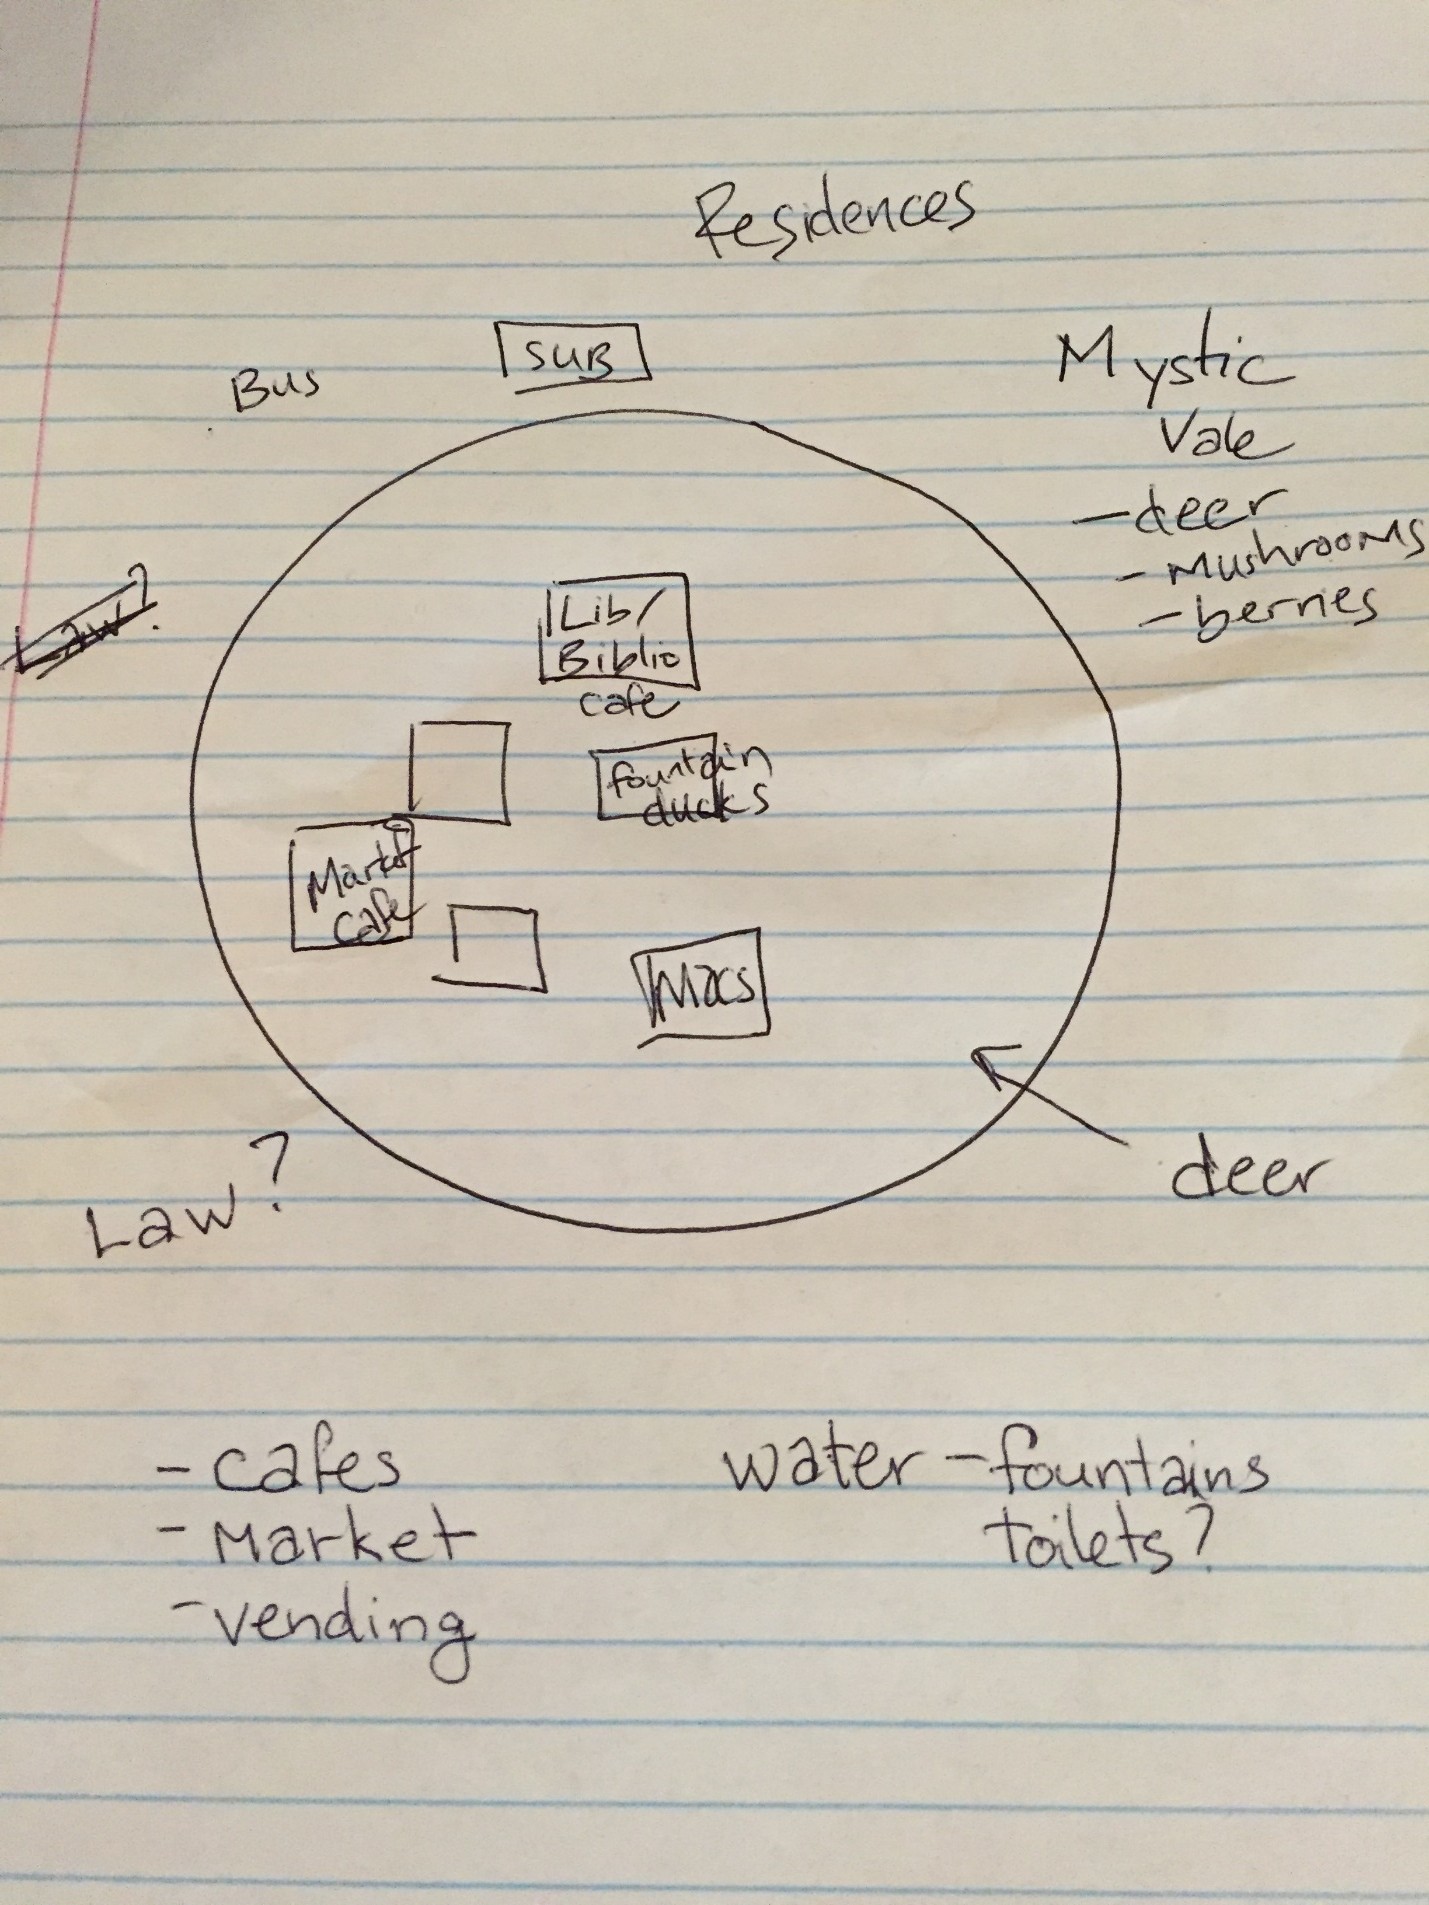 Residences
SUB
Bus
Mystic
Vale
- deer
- Mushrooms
- berries
Law?
Lib/
Biblio
cafe
fountain
ducks
Market
Cafe
Macs
deer
Law?
- cafes
- Market
- vending
water - fountains
toilets?